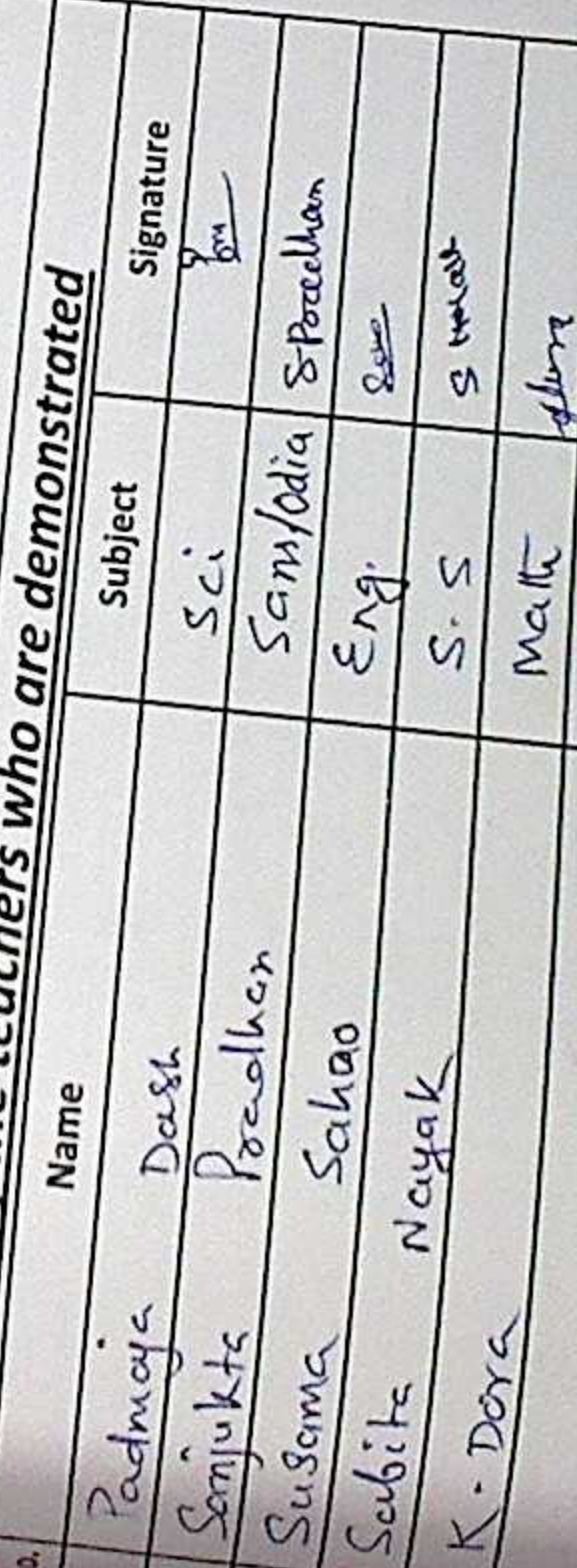 teachers who are demonstrated
Name Subject Signature
Padmaja Dash Sci
Sanjukta Pradhan Sans/Odia S Pradhan
Susama Sahoo Eng.
Sabita Nayak S.S
K. Dora Math